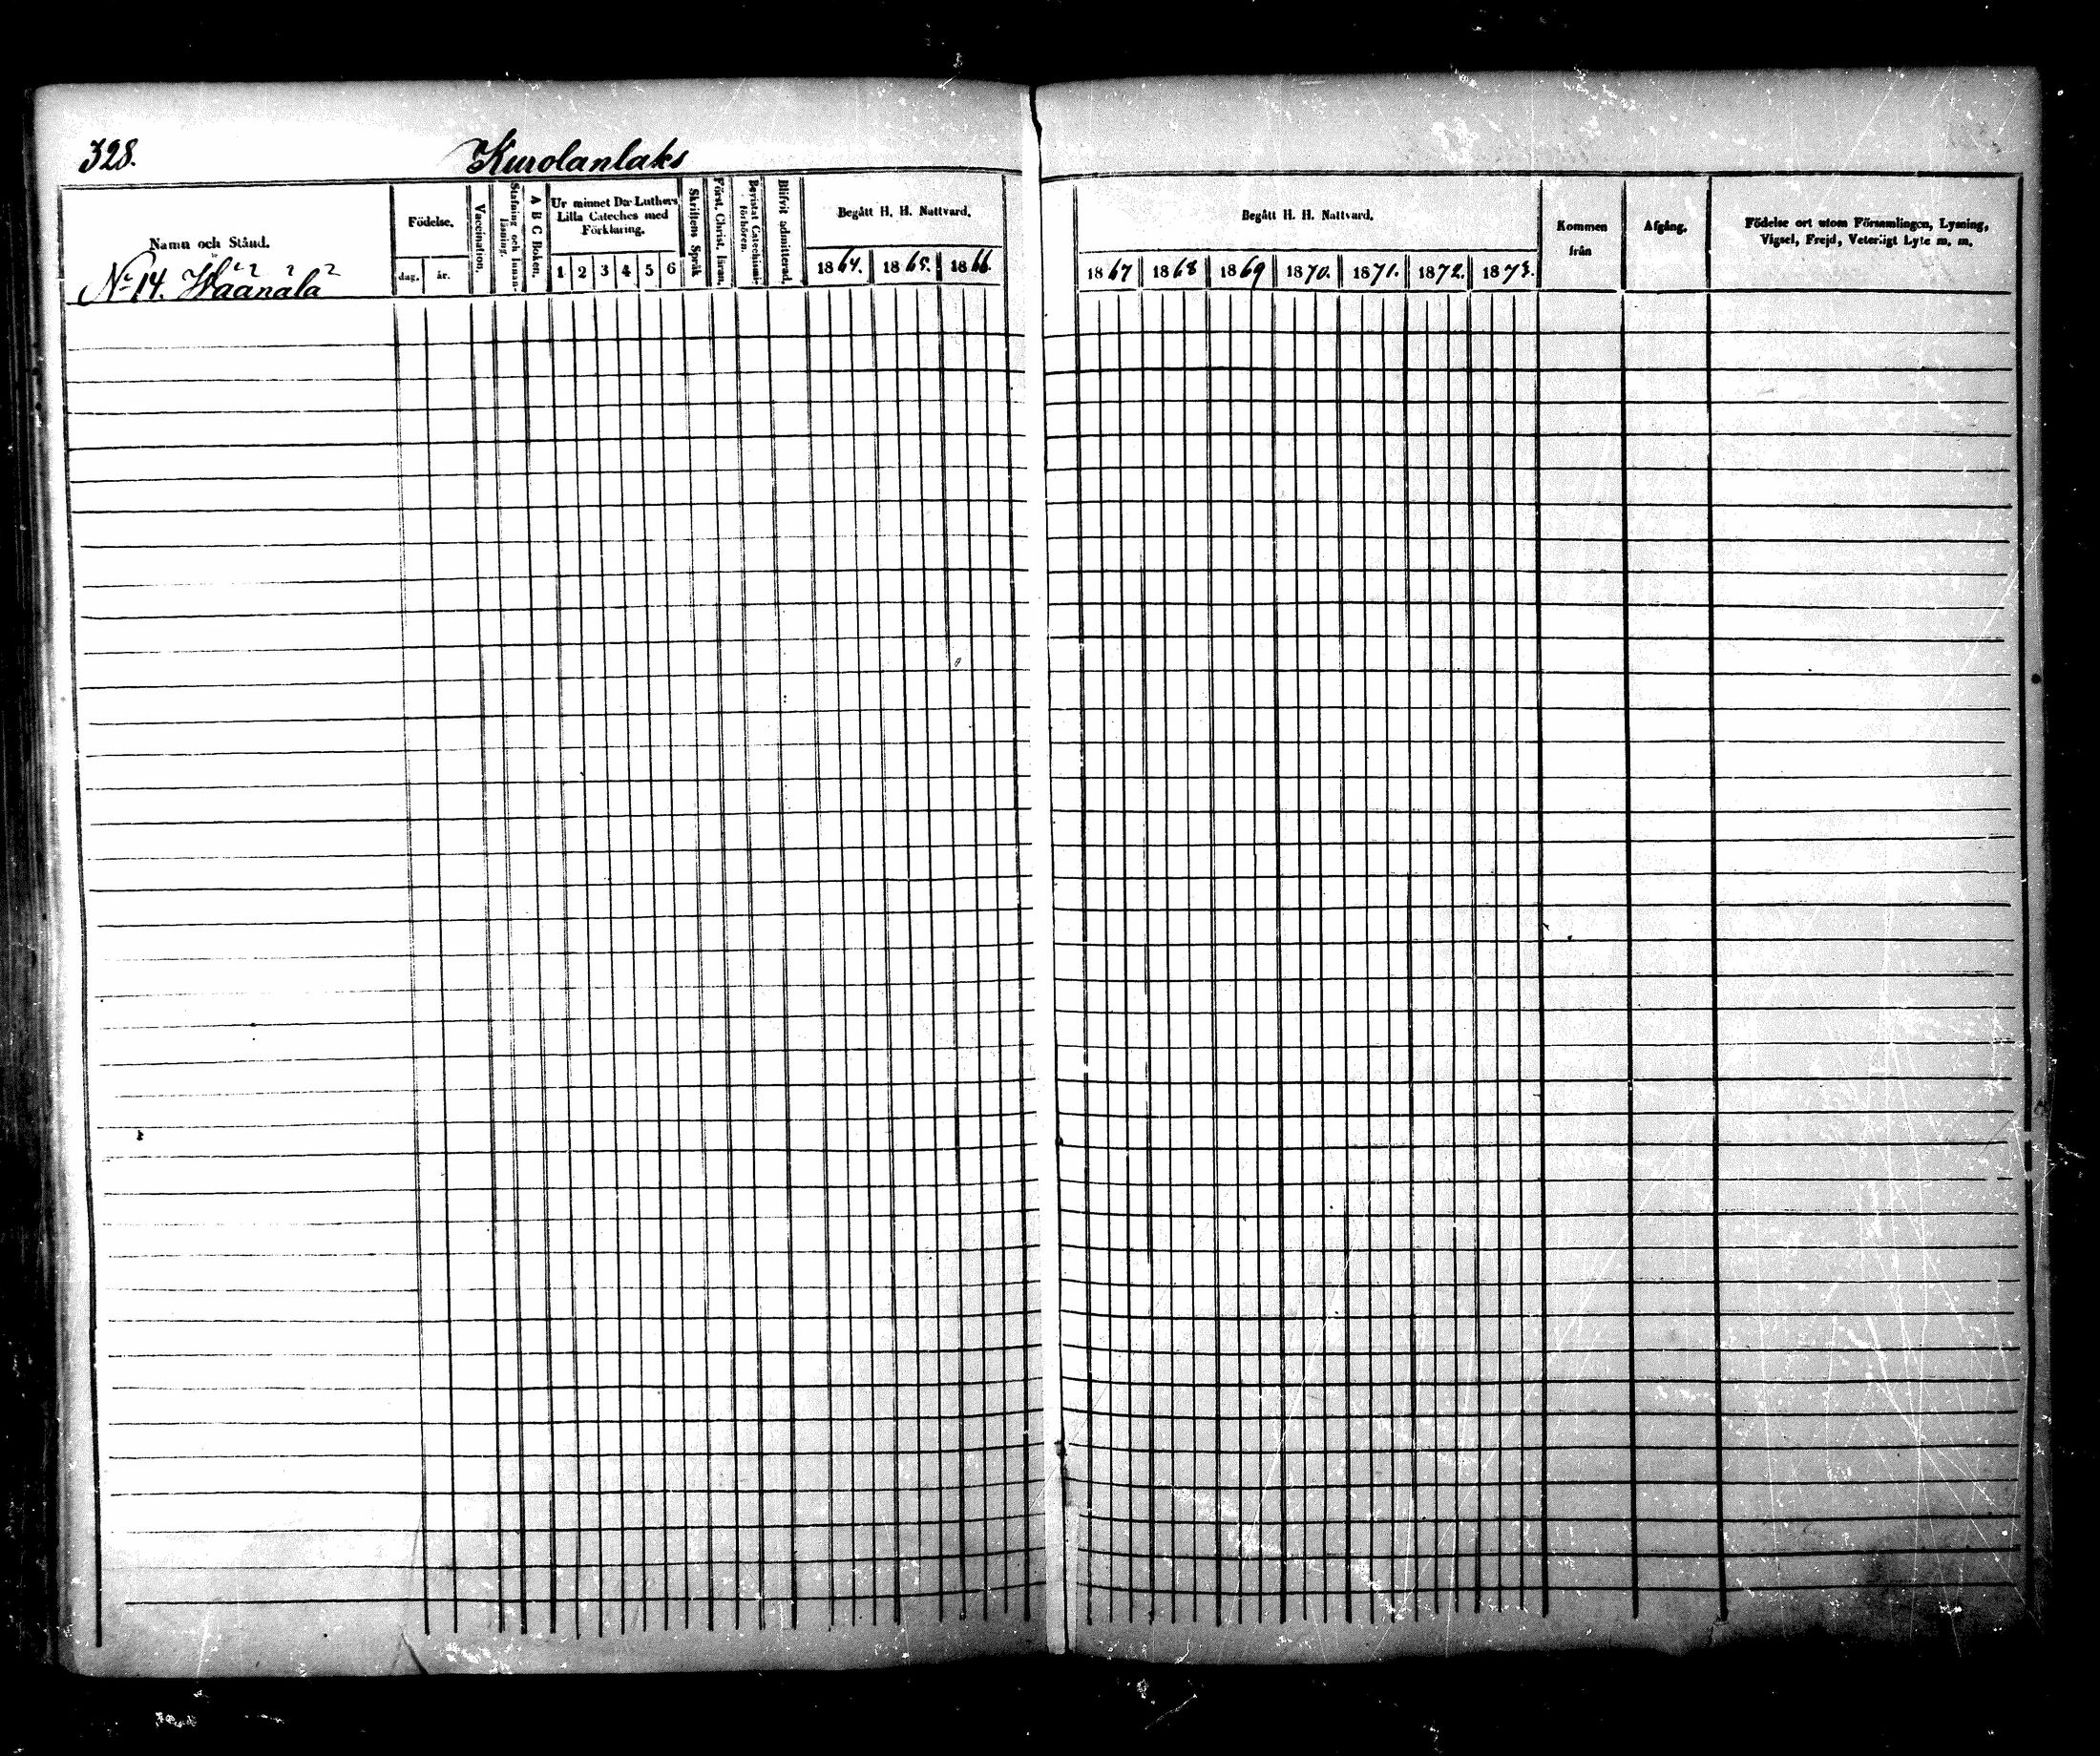 328.
Kurolanlaks
Namn och Stånd.
No 14. Wäänälä
Födelse.
dag. år.
Vaccination.
Stafning och Innan-läsning.
A B C Boken.
Ur minnet Dr Luthers Lilla Cateches med Förklaring.
1 2 3 4 5 6
Skriftens Språk
Först. Christ. läran.
Bevistat Catechismi-förhören.
Blifvit admitterad.
Begått H. H. Nattvard.
1864. 1865. 1866.
Begått H. H. Nattvard.
1867 1868 1869 1870. 1871. 1872. 1873.
Kommen från
Afgång.
Födelse ort utom Församlingen, Lysning,
Vigsel, Frejd, Veterligt Lyte m. m.